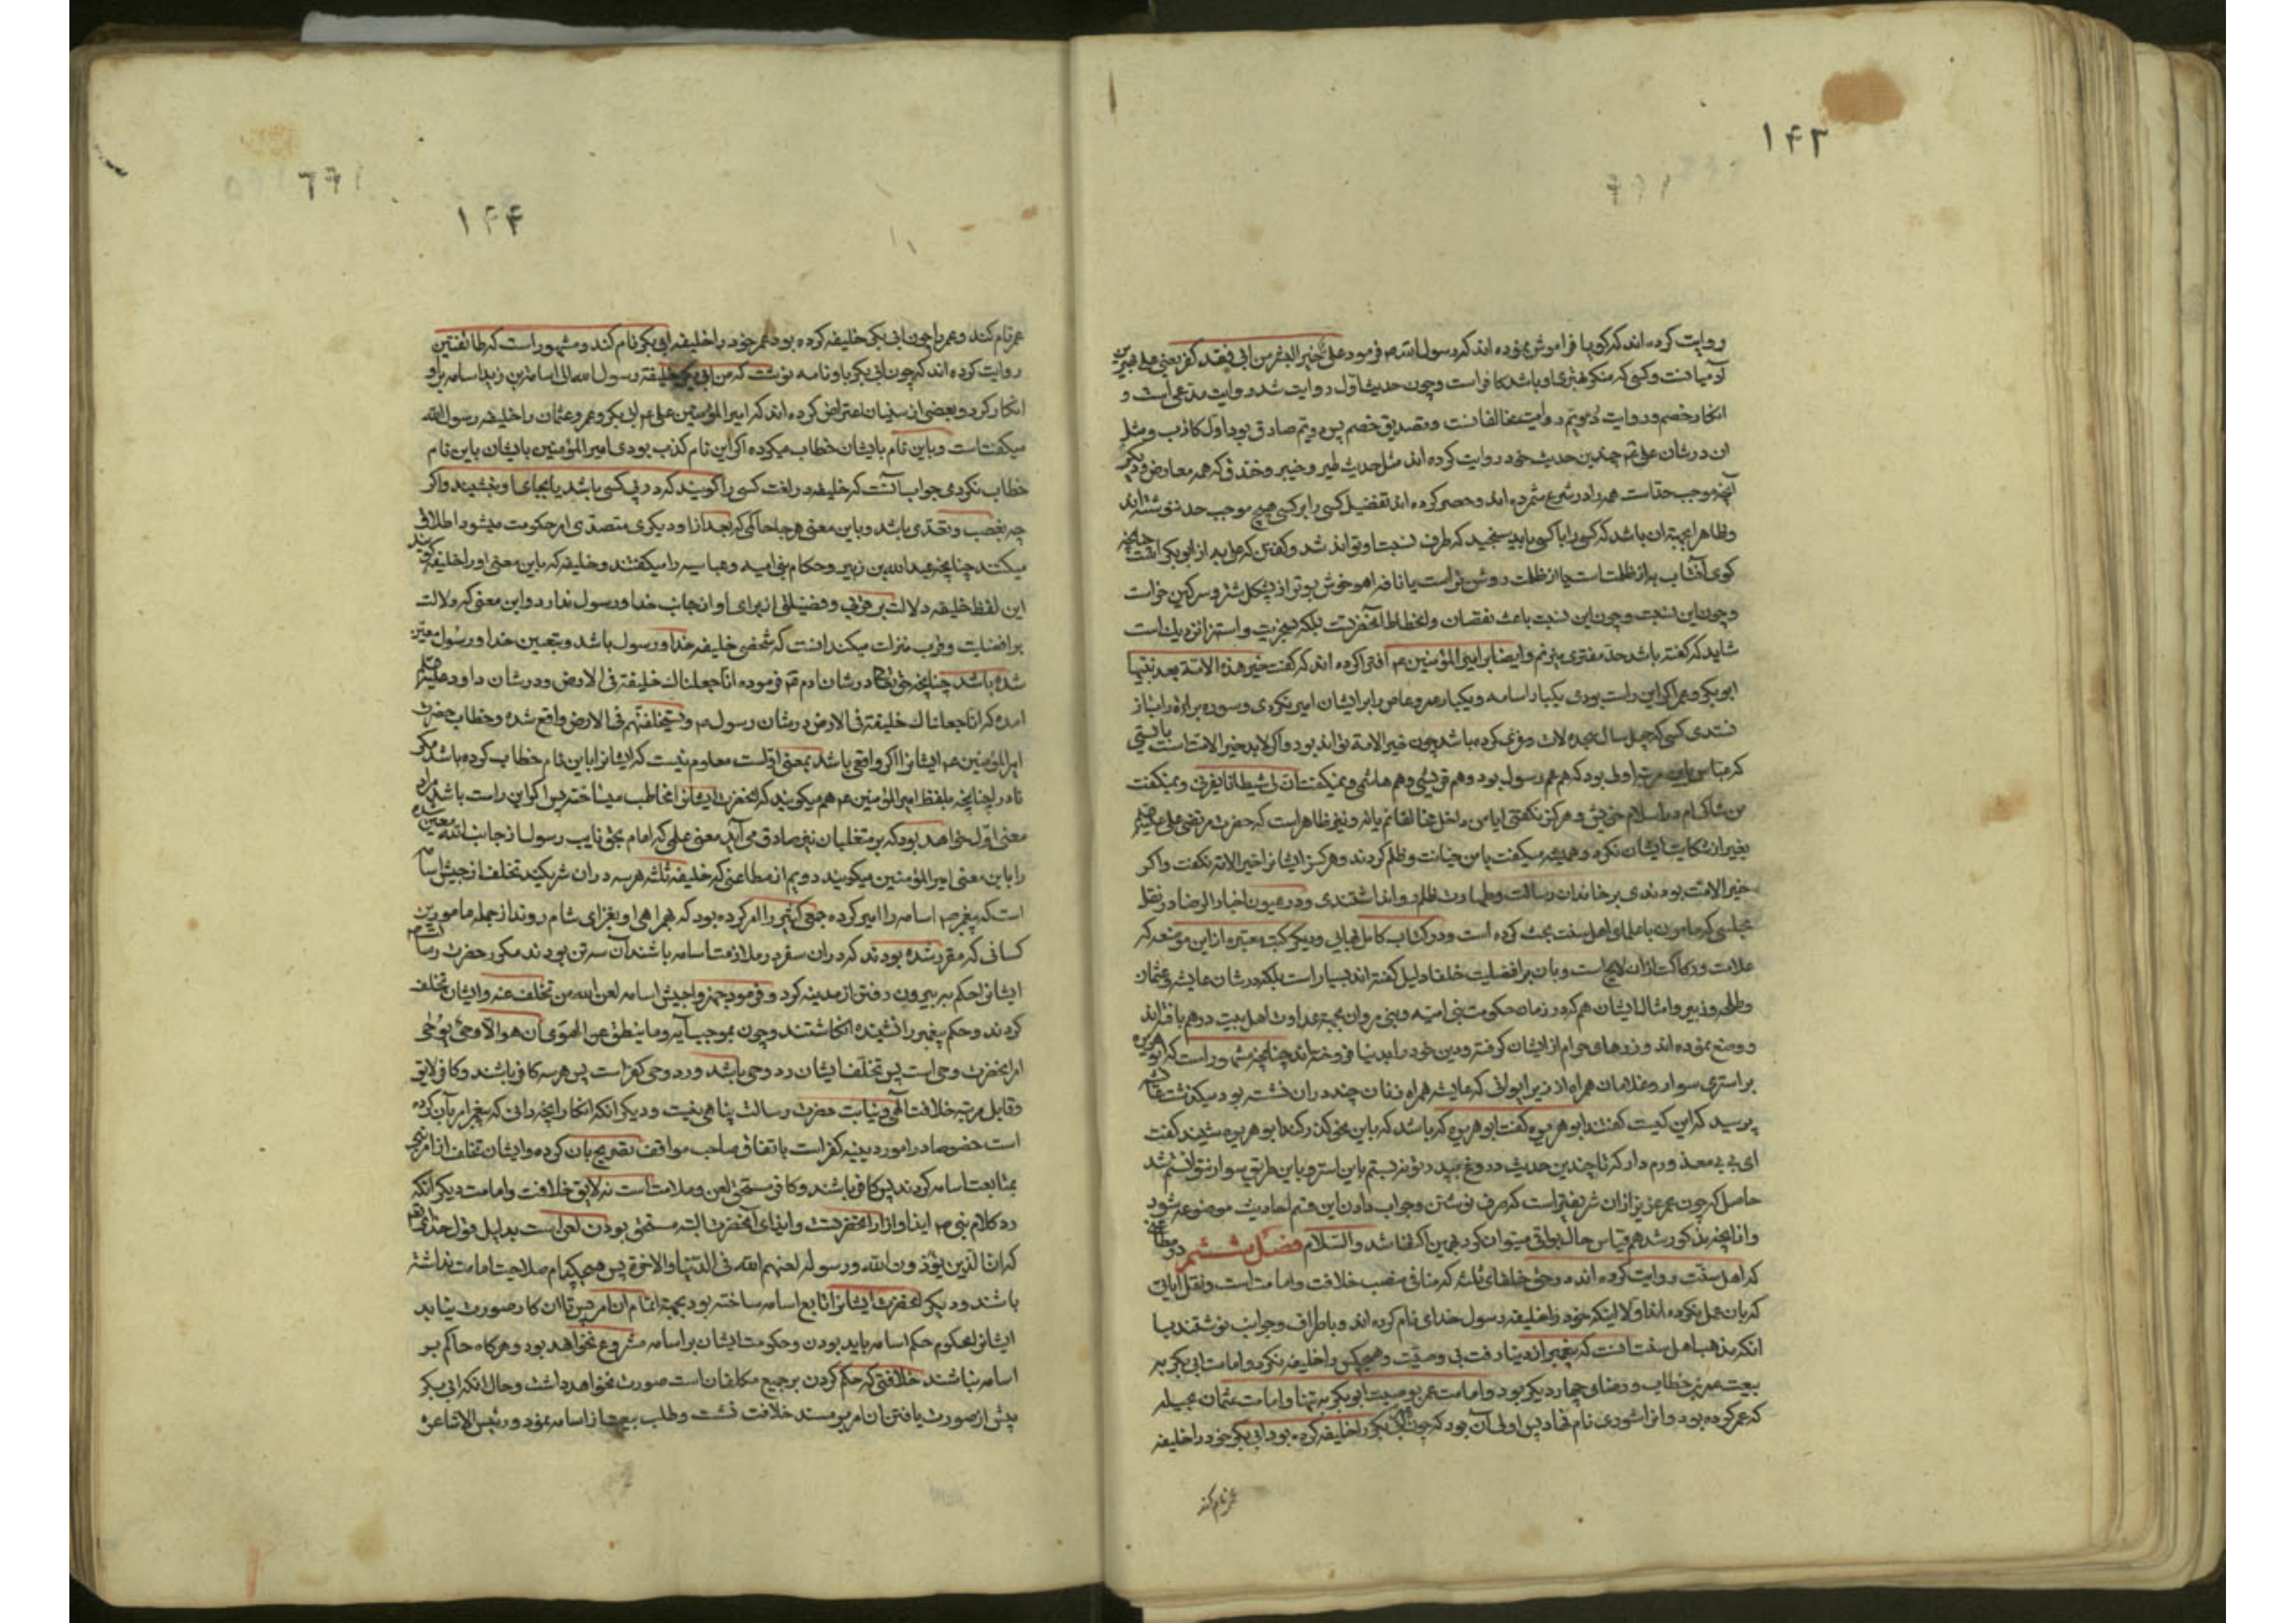 ۱۴۳
روایت کرده‌اند که گویا فراموش نموده‌اند که رسول الله ص فرمود علی خیر البشر من ابی فقد کفر یعنی علی بهترین
آدمیانست و کسی که منکر بهتری او باشد کافر است و چون حدیث اول روایت شد روایت مدعی است و
انکار خصم و روایت دویم روایت مخالفانست و تصدیق خصم پس دویم صادق بود اول کاذب و مثل
ان در شان علی ع چندین حدیث خود روایت کرده‌اند مثل حدیث طیر و خیبر و خندق که همه معارض
آنچه موجب حد است همه را در شرع شمرده‌اند و حصر کرده‌اند تفضیل کسی را بر کسی هیچ موجب حد ننوشته‌اند
و ظاهرا بهتر ان باشد که کسی را با کسی باید سنجید که طرف نسبت او تواند شد و گفتن که علی به از ابی بکر است چنانچه
گوی آفتاب به از ظلمت است یا از ظلمت روشن‌تر است یا نافه اهو خوش بوتر از پشکل شتر و سرگین خر است
و چون این نسبت و چون این نسبت باعث نقصان و انحطاط آنحضرت بلکه سخریت و استهزا نزدیک است
شاید که گفته باشد حد مفتری میزنم و ایضا بر امیر المؤمنین ع افترا کرده‌اند که گفت خیر هذه الامة بعد نبیها
ابو بکر و عمر اگر این راست بودی یکبار اسامه و یکبار عمرو عاص را بر ایشان امیر نکردی و سوره براءة را باز
نستدی کسی که چهل سال سجده لات و عزی کرده باشد چون خیر الامة تواند بود و اگر لابد خیر الامة است بایستی
که عباس باین مرتبه اولی بود که هم عم رسول بود و هم قریشی و هم هاشمی و نمیگفت ان لی شیطانا یغرنی و نمیگفت
من شاک ام در اسلام خویش و هرگز نگفتی
بغیر از شکایت ایشان نکرد و همیشه میگفت با من خیانت و ظلم کردند و هرگز ایشانرا خیر الامة نگفت و اگر
خیر الامة بودندی بر خاندان رسالت و طهارت ظلم روا نداشتندی و در عیون اخبار الرضا در نقل
مجلسی که مامون با علمای اهل سنت بحث کرده است و در کتاب کامل بهایی و دیگر کتب معتبره از این موضعه که
علامت و رکاکت از ان لایح است و بان بر افضلیت خلفا دلیل گفته‌اند بسیار است بلکه در شان عایشه و عثمان
و طلحه و زبیر و امثال ایشان هم که در زمان حکومت بنی امیه و بنی مروان بجهة عداوت اهل بیت در هم بافته‌اند
و وضع نموده‌اند و زرهای حرام از ایشان گرفته و دین خود را بدنیا فروخته‌اند چنانچه مشهور است که ابو هریره
بر استری سوار و غلامان همراه از زیر ایوانی که عایشه همراه زنان چند در ان نشسته بود میگذشت عایشه
پرسید که این کیست گفتند ابو هریره گفت ابو هریره که باشد که باین نحو گذر کند ابو هریره شنید گفت
ای بی بی معذورم دار که تا چندین حدیث دروغ بپدرت نبستم باین استر و باین طریق سوار نتوانستم شد
حاصل که چون عمر عزیز از ان شریفتر است که صرف نوشتن و جواب دادن این قسم احادیث موضوعه شود
و از آنچه مذکور شد هم قیاس حال بواقی میتوان کرد بهمین اکتفا شد والسلام فصل ششم در مطاعنی
که اهل سنت روایت کرده‌اند در حق خلفای ثلثه که منافی منصب خلافت و امامت است و نقل آیاتی
که بان عمل نکرده‌اند اولا اینکه خود را خلیفه رسول خدای نام کرده‌اند و باطراف و جوانب نوشتند با
انکه مذهب اهل سنت انست که پیغمبر از دنیا رفت بی وصیت و هیچکس را خلیفه نکرد و امامت ابی بکر به
بیعت عمر بن خطاب و رضای چهار دیگر بود و امامت عمر بوصیت ابو بکر به تنها و امامت عثمان بحیله
که عمر کرده بود و انرا شوری نام نهاد پس اولی آن بود که چون عمر ابی بکر را خلیفه کرده بود ابی بکر خود را خلیفه
عمر نام کند
۱۴۴
عمر نام کند و عمر را چون ابی بکر خلیفه کرده بود عمر خود را خلیفه ابی بکر نام کند و مشهور است که طائفتین
روایت کرده‌اند که چون ابی بکر باو نامه نوشت که من ابی بکر خلیفة رسول الله الی اسامة بن زید اسامه بر او
انکار کرد و بعضی از سنیان اعتراض کرده‌اند که امیر المؤمنین علی ع ابی بکر و عمر و عثمان را خلیفه رسول الله
میگفتست و باین نام بایشان خطاب میکرده اگر این نام کذب بودی امیر المؤمنین بایشان باین نام
خطاب نکردی جواب آنست که خلیفه در لغت کسی را گویند که در پی کسی باشد یا بجای او بنشیند و اگر
چه بغصب و تعدی باشد و باین معنی هر جا حاکمی که بعد از او دیگری متصدی امر حکومت میشود اطلاق
میکنند چنانچه عبد الله بن زبیر و حکام بنی امیه و عباسیه را میگفتند و خلیفه که باین معنی او را خلیفه گویند
این لفظ خلیفه دلالت بر قربی و فضیلتی از برای او از جانب خدا و رسول ندارد و این معنی که دلالت
بر افضلیت و قرب منزلت میکند انست که شخصی خلیفه خدا و رسول باشد و بتعیین خدا و رسول معین
شده باشد چنانچه حق تعالی در شان ادم ع فرموده انا جعلناک خلیفة فی الارض و در شان داود علیه السلام
امده که انا جعلناک خلیفة فی الارض در شان رسول ص و لیستخلفنهم فی الارض واقع شده و خطاب حضرت
امیر المؤمنین ع ایشانرا اگر واقع باشد بمعنی اولست معلوم نیست که ایشانرا باین نام خطاب کرده باشد مگر
نادرا چنانچه بلفظ امیر المؤمنین ع هم میگویند که انحضرت ایشانرا مخاطب میساخته پس اگر این راست باشد مراد
معنی اول خواهد بود که بر متغلبان نیز صادق می‌آید معنی علی که امام بحق نایب رسول از جانب الله معین شده
را باین معنی امیر المؤمنین میگویند دویم از مطاعنی که خلیفه ثلثه هر سه در ان شریکند تخلف از جیش اسامه
است که پیغمبر ص اسامه را امیر کرده جمعی کثیر را امر کرده بود که همراهی او بغزای شام روند از جمله مامورین
کسانی که مقرر شده بودند که در ان سفر در ملازمت اسامه باشند آن سه تن بودند مکرر حضرت رسالت
ایشانرا حکم به بیرون رفتن از مدینه کرد و فرمود جهزوا جیش اسامه لعن الله من تخلف عنه و ایشان تخلف
کردند و حکم پیغمبر را نشنیده انکاشتند و چون بموجب آیه و ما ینطق عن الهوی ان هو الا وحی یوحی
امر انحضرت وحی است پس تخلف ایشان رد وحی باشد و رد وحی کفر است پس هر سه کافر باشند و کافر لایق
و قابل مرتبه خلافت الهی و نیابت حضرت رسالت پناهی نیست و دیگر انکه انکار انچه دانی که پیغمبر امر بآن کرده
است خصوصا در امور دینیه کفر است باتفاق صاحب مواقف تصریح بان کرده و ایشان تخلف از امر نبی
بمتابعت اسامه کردند پس کافر باشند و کافر مستحق لعن و ملامت است نه لایق خلافت و امامت دیگر آنکه
رد کلام نبی ص ایذا و ازار انحضرتست و ایذای آنحضرت البته مستحق بودن لعن است بدلیل قول خدای تعالی
که ان الذین یؤذون الله و رسوله لعنهم الله فی الدنیا والاخرة پس هیچکدام صلاحیت امامت نداشته
باشند و دیگر انحضرت ایشانرا تابع اسامه ساخته بود بجهة اتمام ان امر پس تا ان کار صورت نیابد
ایشانرا محکوم حکم اسامه باید بودن و حکومت ایشان بر اسامه مشروع نخواهد بود و هرگاه حاکم بر
اسامه نباشند خلافتی که حکم کردن بر جمیع مکلفان است صورت نخواهد داشت و حال انکه ابی بکر
پیش از صورت یافتن ان امر بر مسند خلافت نشست و طلب بیعت از اسامه نمود و رئیس الاشاعره